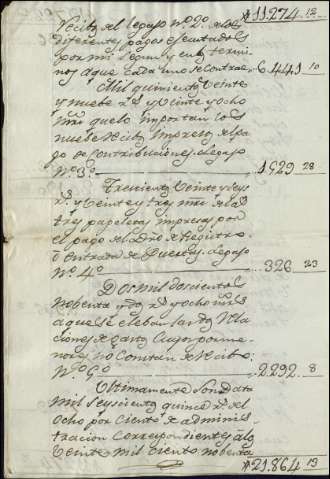 $11.274,, 12
Recibos del legajo nº 2º de los
diferentes pagos ejecutados
por mi segun y en los termi
nos a que cada uno se contrae 6.441,, 10
Mil quinientos veinte
y nueve r.s y veinte y ocho
mrs que lo importan los
nueve Recibos impresos del pa
go de contribuciones. Legajo
Nº 3º 1529,, 28
Trecientos veinte y seys
rs y veinte y tres mrs de las
tres papeletas impresas por
el pago del dro de Registro
o entrada de Puertas. Legajo
Nº 4º 326,, 23
Dos mil doscientos
nobenta y dos rs y ocho mrs
a que se eleban las dos Rela
ciones de gastos cuyos porme
nores no constan de Recibo.
Nº 5º 2.292,, 8
Ultimamente son data
mil seyscientos quince rs del
ocho por ciento de adminis
tracion correspondientes a los
veinte mil ciento nobenta
$21.864,, 13